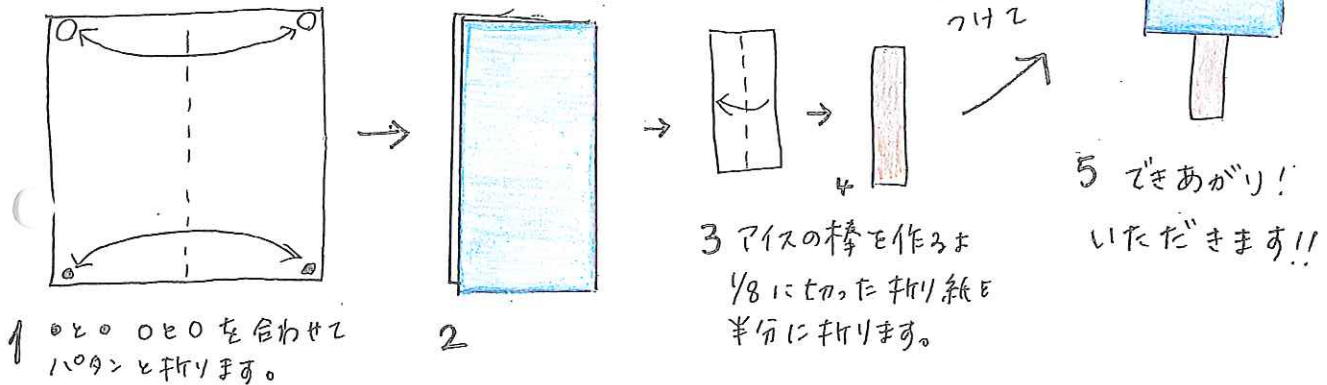 1 ●と● ○と○を合わせて
パタンと折ります。
2
3 アイスの棒を作るよ
1/8に切った折り紙を
半分に折ります。
4
つけて
5 できあがり!
いただきます!!